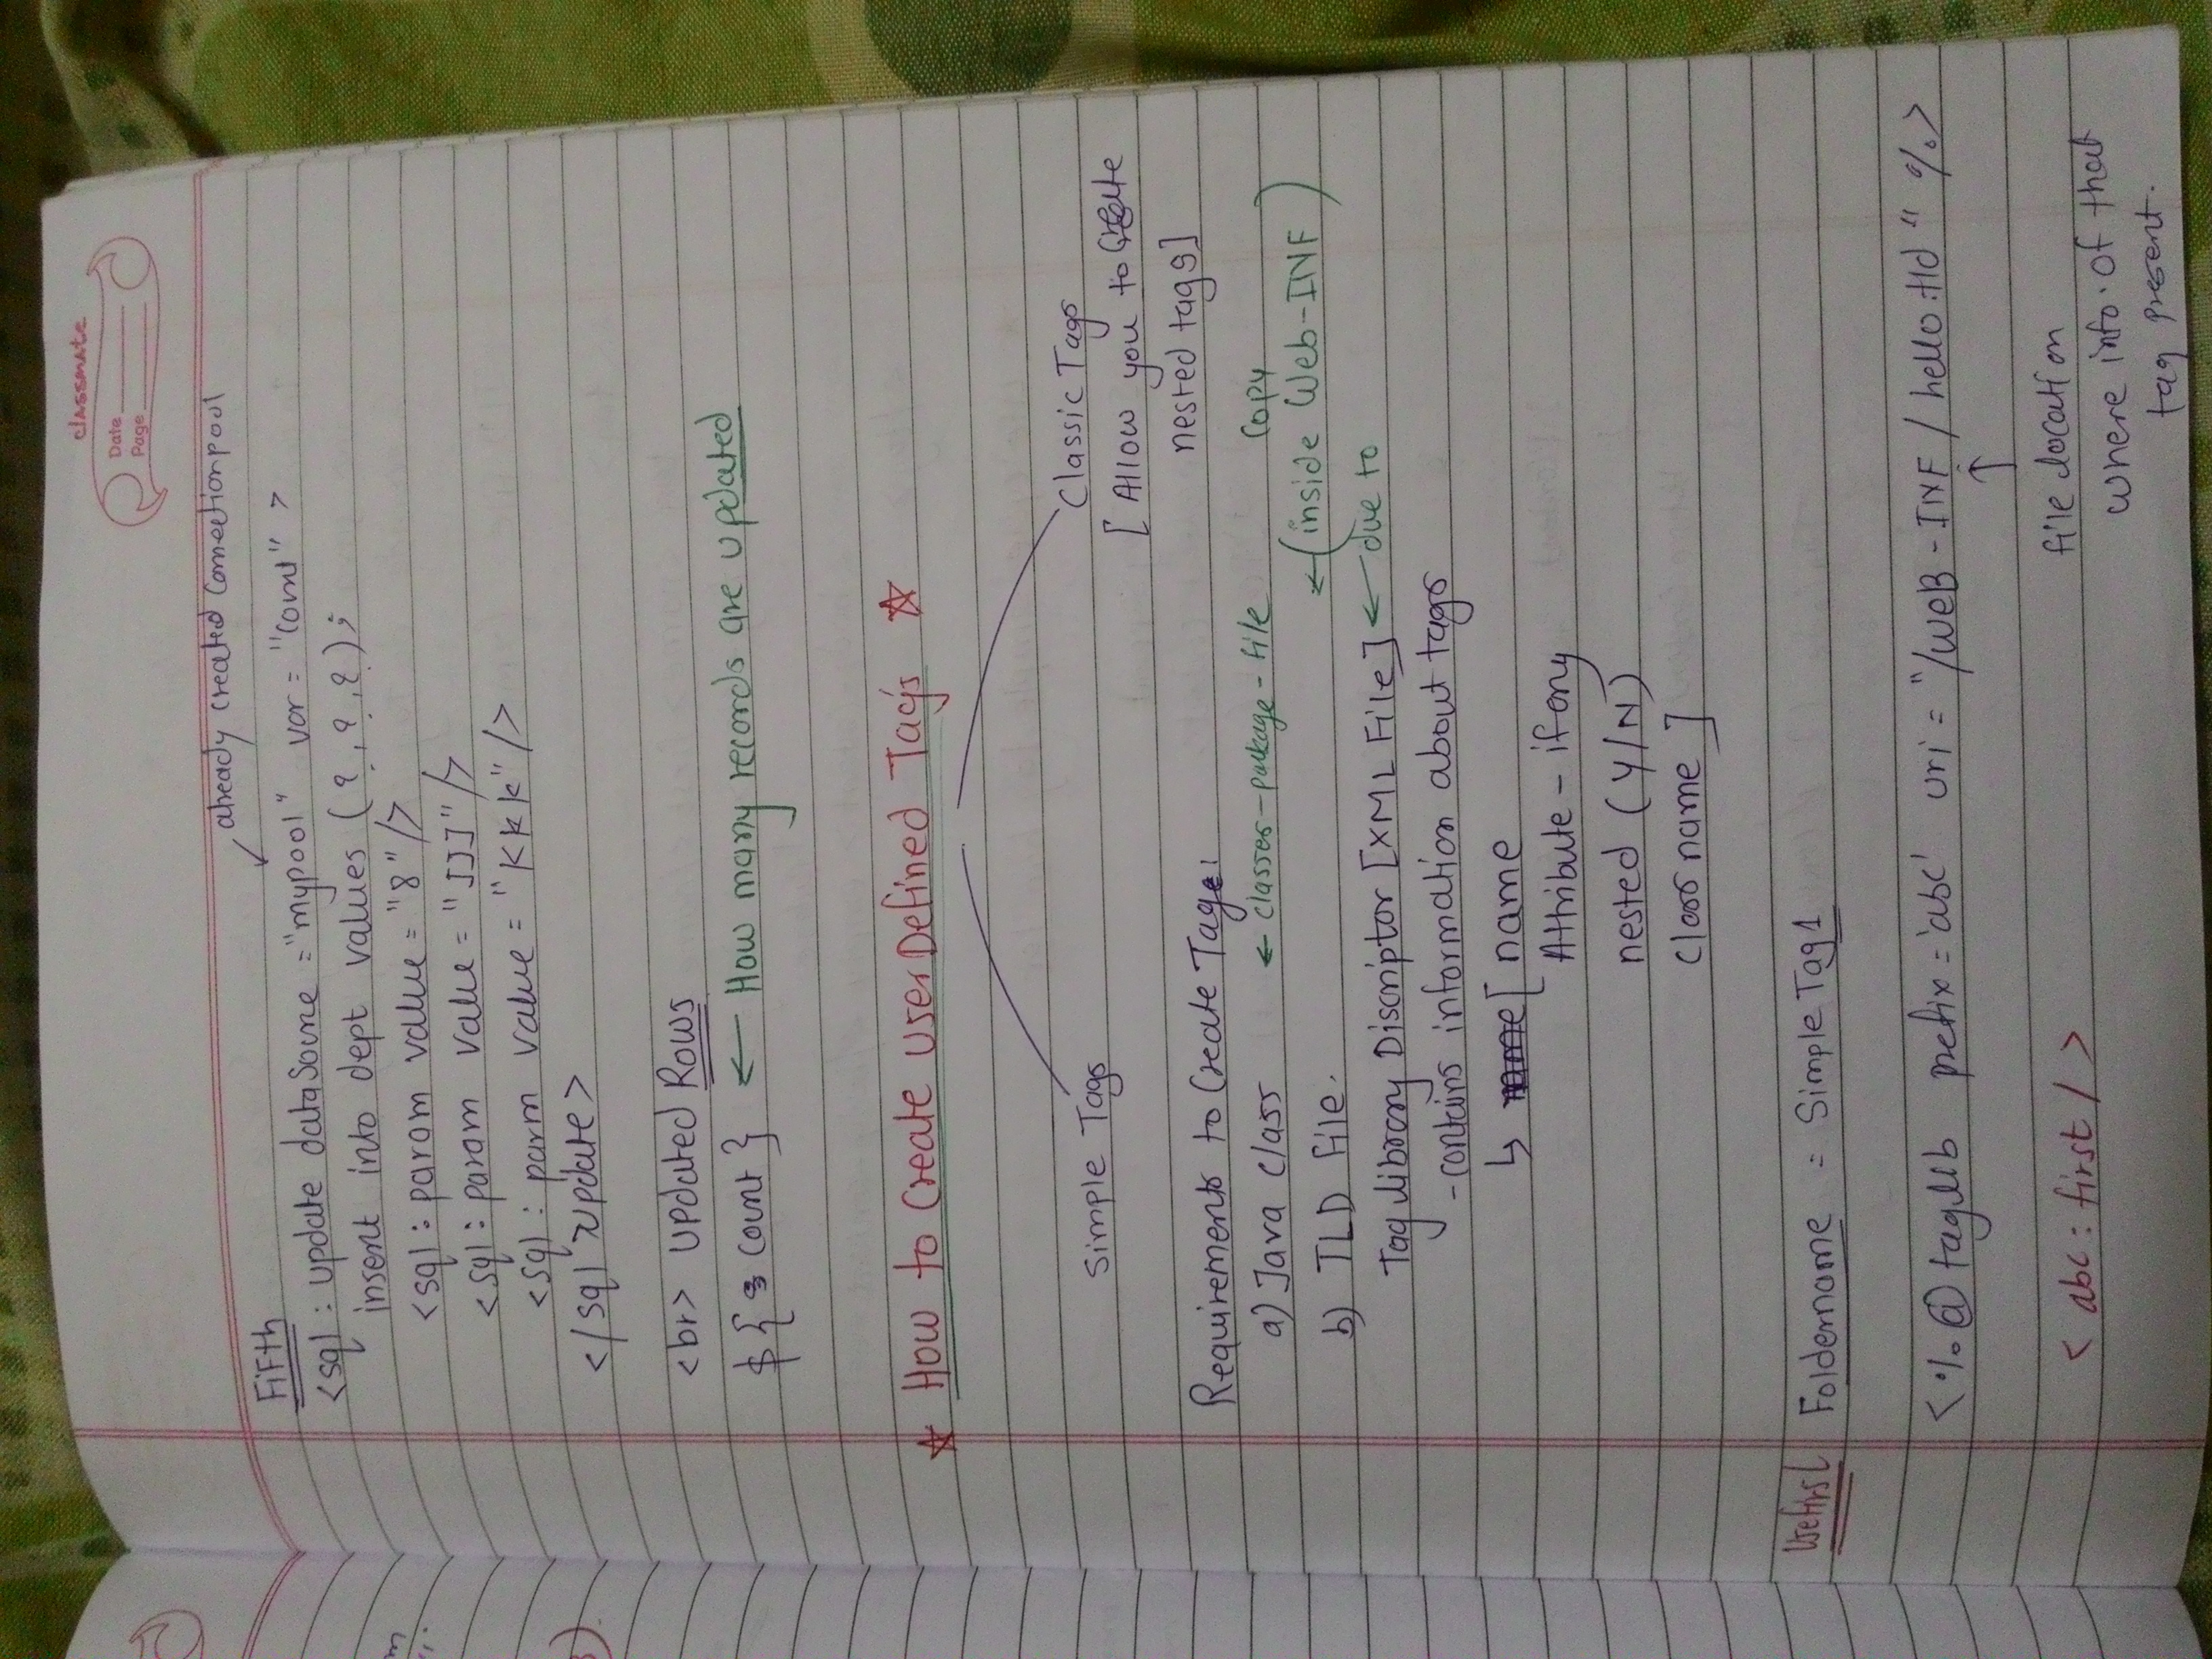 classmate
Date
Page
already created Connectionpool
Fifth
<sql : update dataSource = "mypool" var = "Count" >
insert into dept values ( ? , ? , ? ) ;
<sql : param value = "8" />
<sql : param value = "JJJ" />
<sql : parm value = "KKK" />
</sql : update>
<br> Updated Rows
${ count } ← How many records are updated
☆ How to Create UserDefined Tag's ☆
Simple Tags
Classic Tags
[ Allow you to Create
nested tags]
Requirements to Create Tag:
a) Java Class ← classes-package-file
Copy
b) TLD File. ← (inside Web-INF )
Tag library Discriptor [XML File] ← due to
- contains information about tags
↳ [ name
Attribute - if any
nested (Y/N)
Class name ]
Usefirst Foldername = SimpleTag1
<%@taglib prefix='abc' uri = "/WEB-INF/hello.tld" %>
↑
<abc : first / >
file location
where info. of that
tag present.